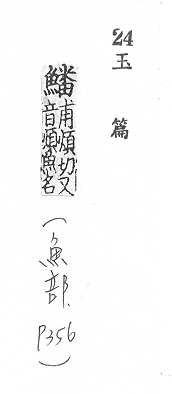 24 玉篇
鱕甫煩切又音煩魚名
(魚部 P356)